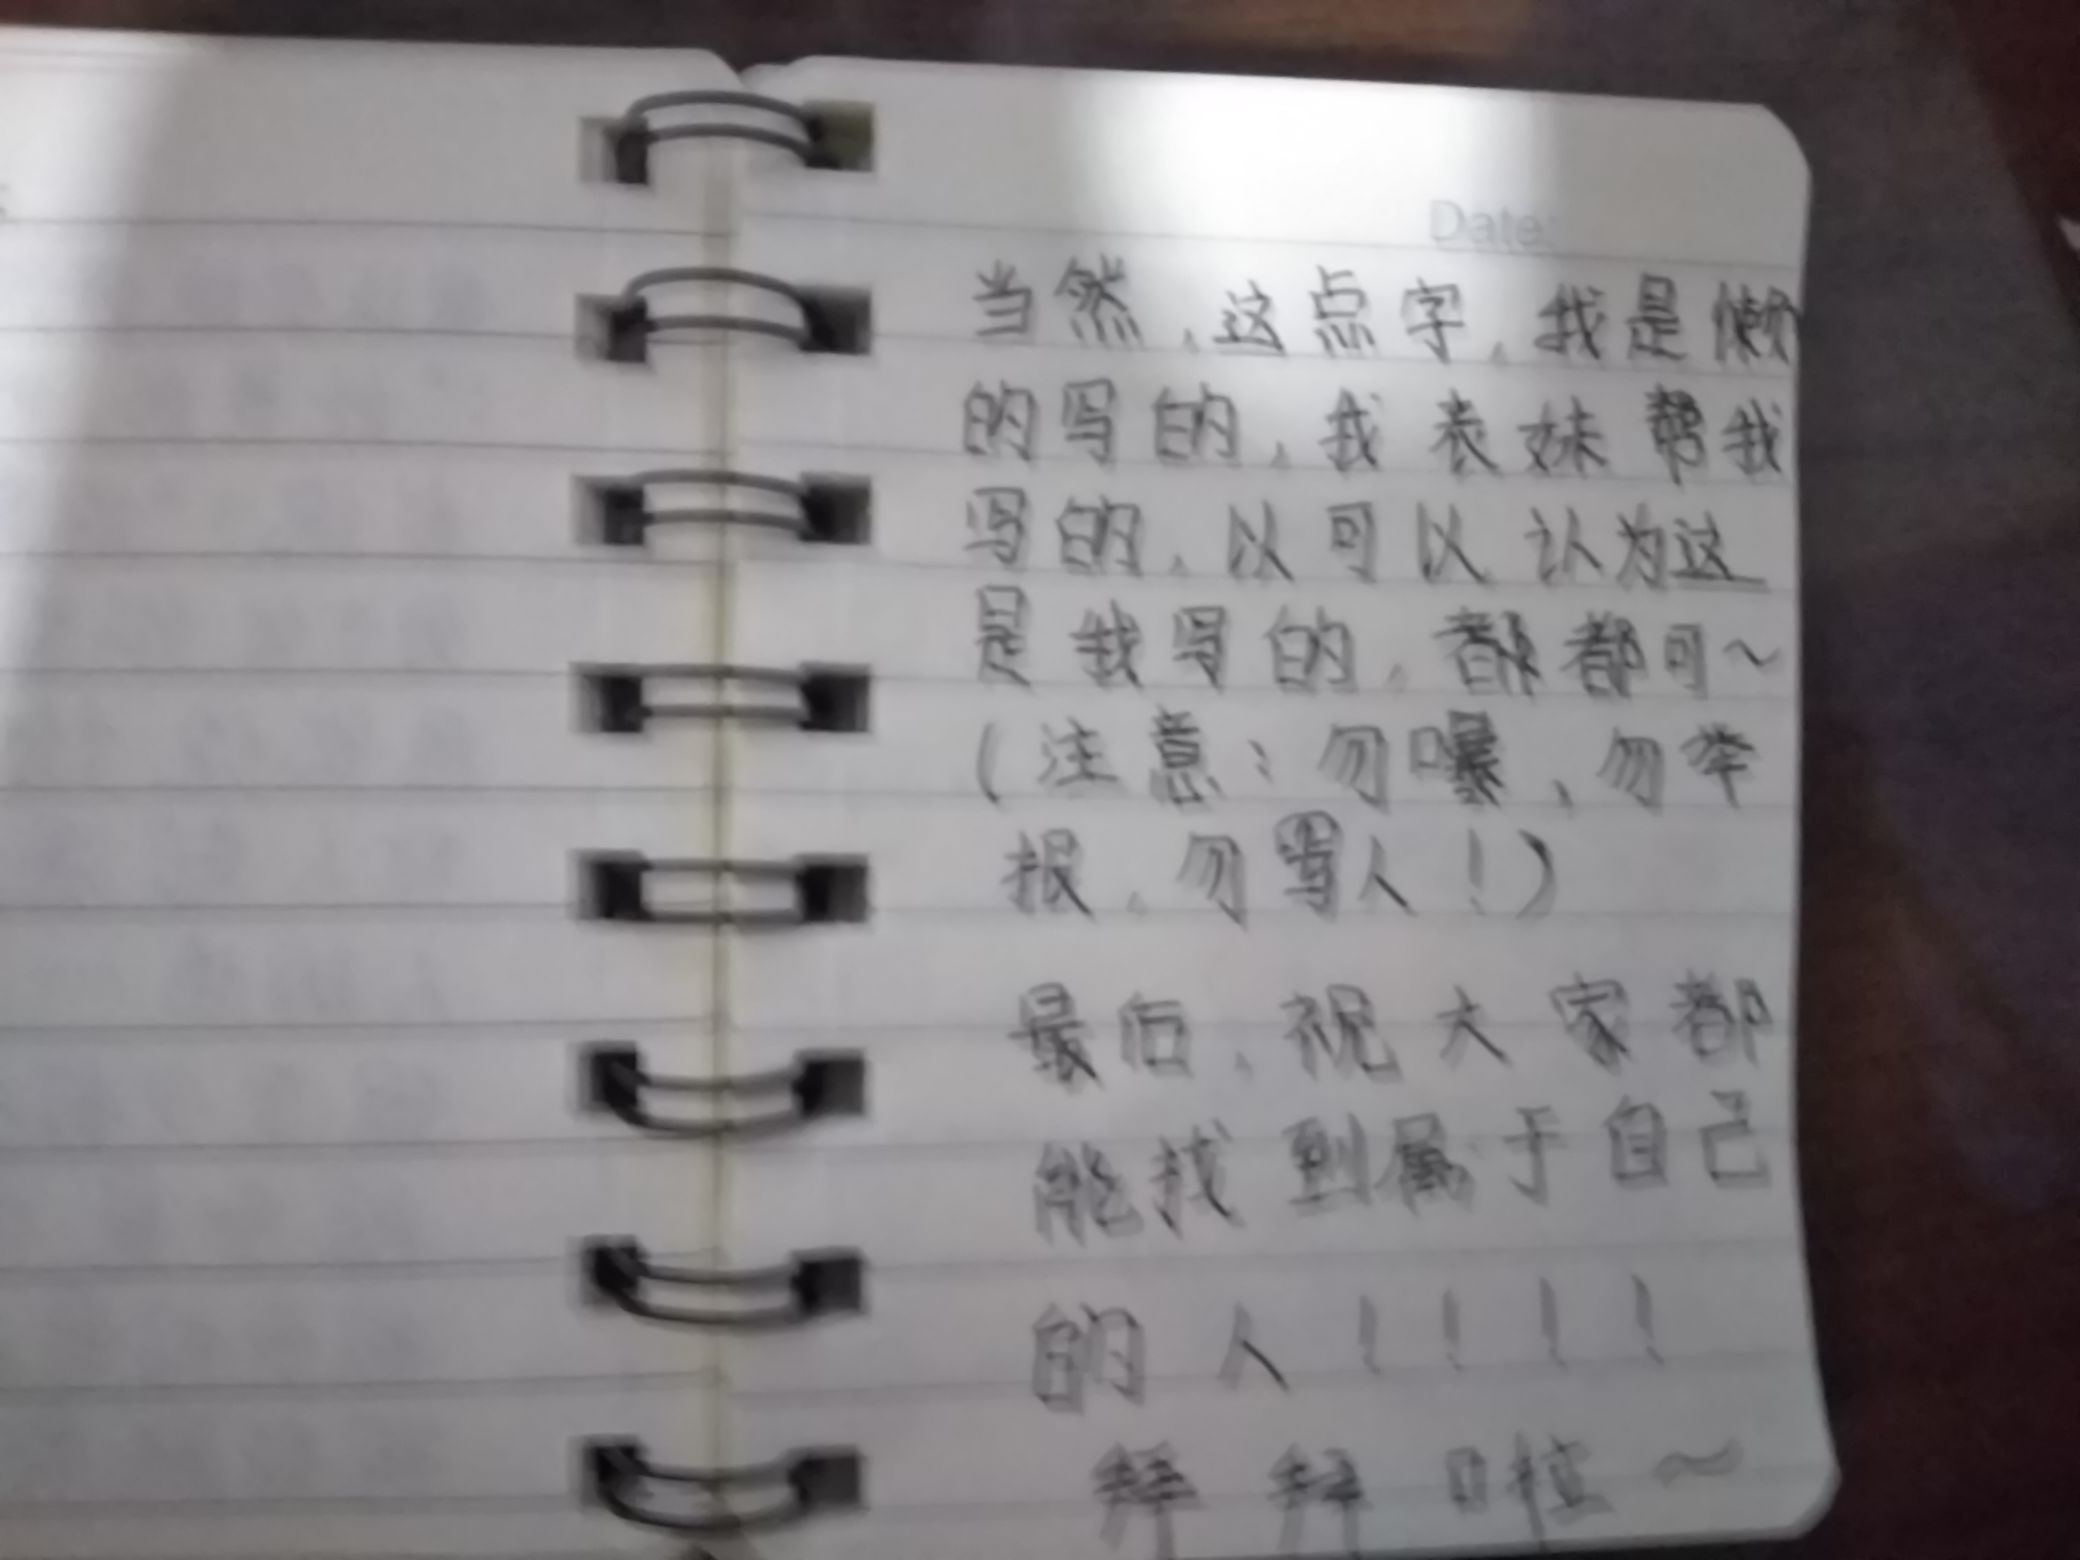 Date:
当然,这点字,我是懒
的写的,我表妹帮我
写的,以可以认为这
是我写的,都都可~
(注意:勿曝,勿举
报,勿骂人!)
最后,祝大家都
能找到属于自己
的人!!!!
拜拜啦~